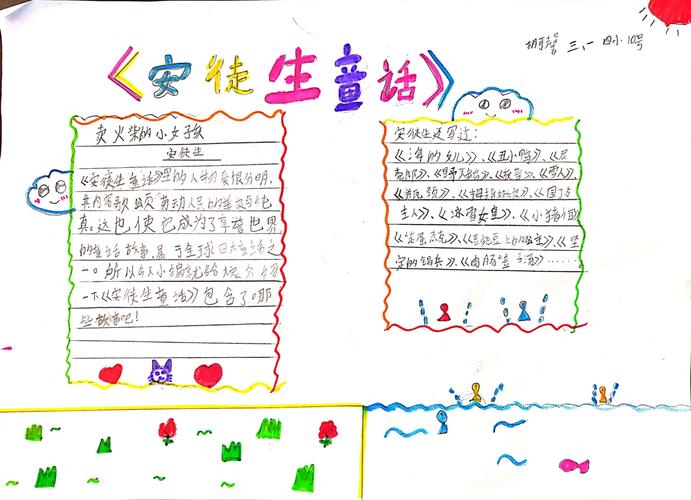 三、一 四小 10号
《安徒生童话》
卖火柴的小女孩
安徒生
《安徒生童话》里的人物爱恨分明,
其内容歌颂劳动人民的善良与纯
真。这也使它成为了享誉世界
的童话故事,属于全球四大童话之
一。所以今天小编就给大家介绍
一下《安徒生童话》包含了哪
些故事吧!
安徒生还写过:
《海的女儿》、《丑小鸭》、《尼
《野天鹅》、《雪人》、
《瓶颈》、《拇指姑娘》、《園丁与
主人》、《冰雪女皇》、《小猪倌》
《笨蛋杰克》、《豌豆上的公主》、《坚
定的锡兵》、《肉肠签子汤》……